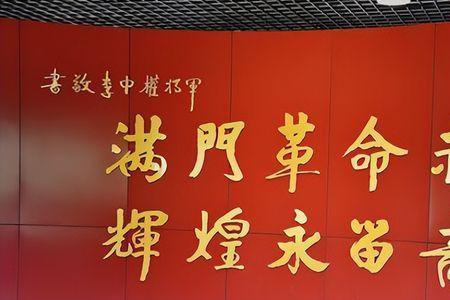 書敬李中權将軍
满門革命
輝煌永留